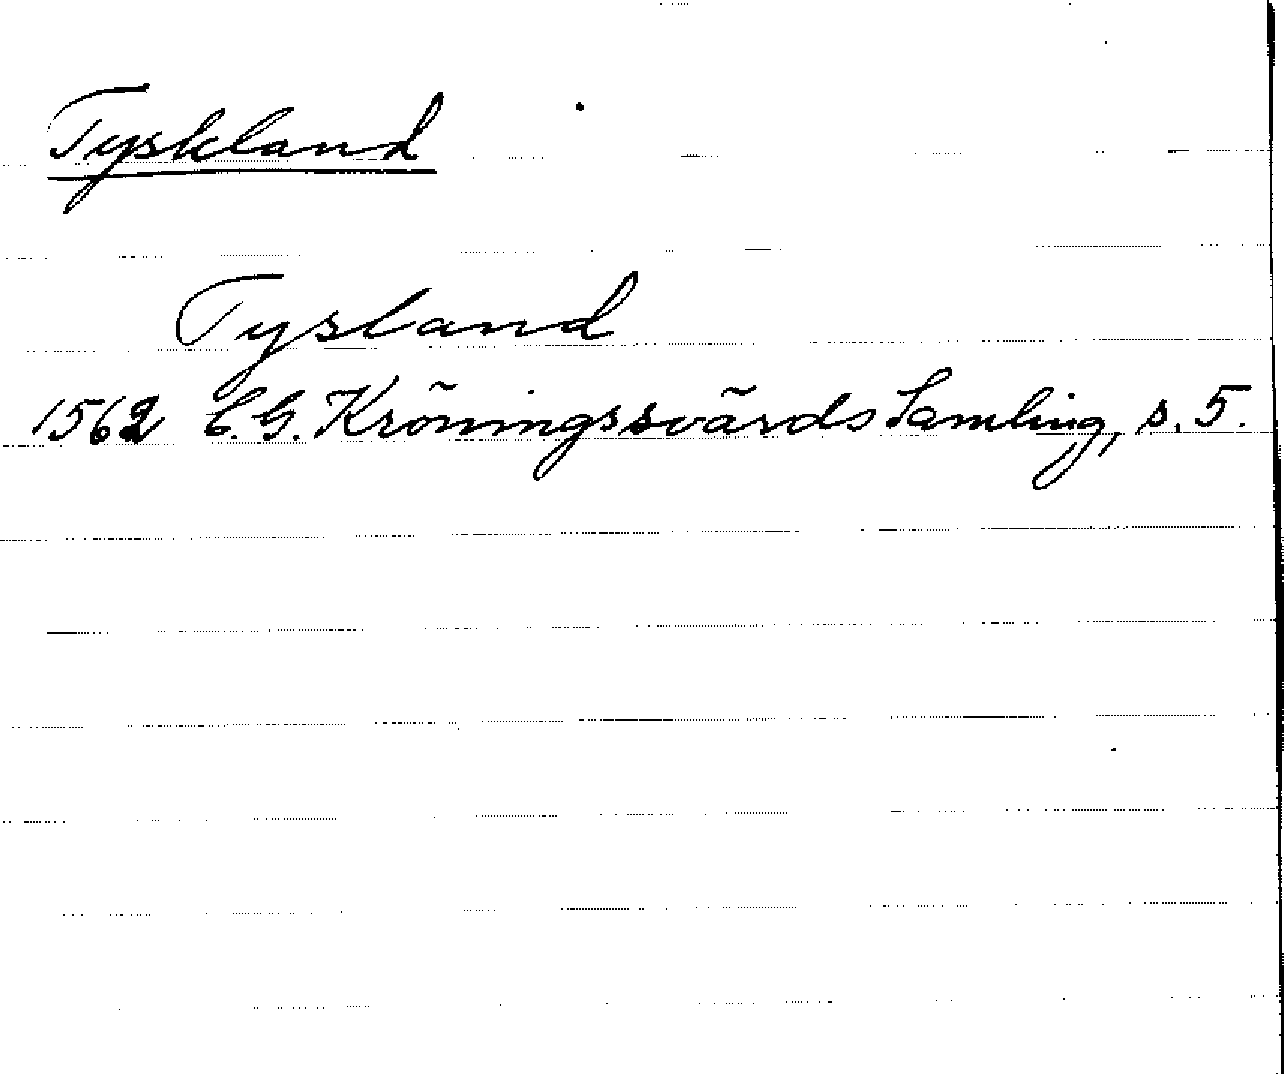 Tyskland
Tysland
1562 C.G. Kröningssvärds Samling, s. 5.